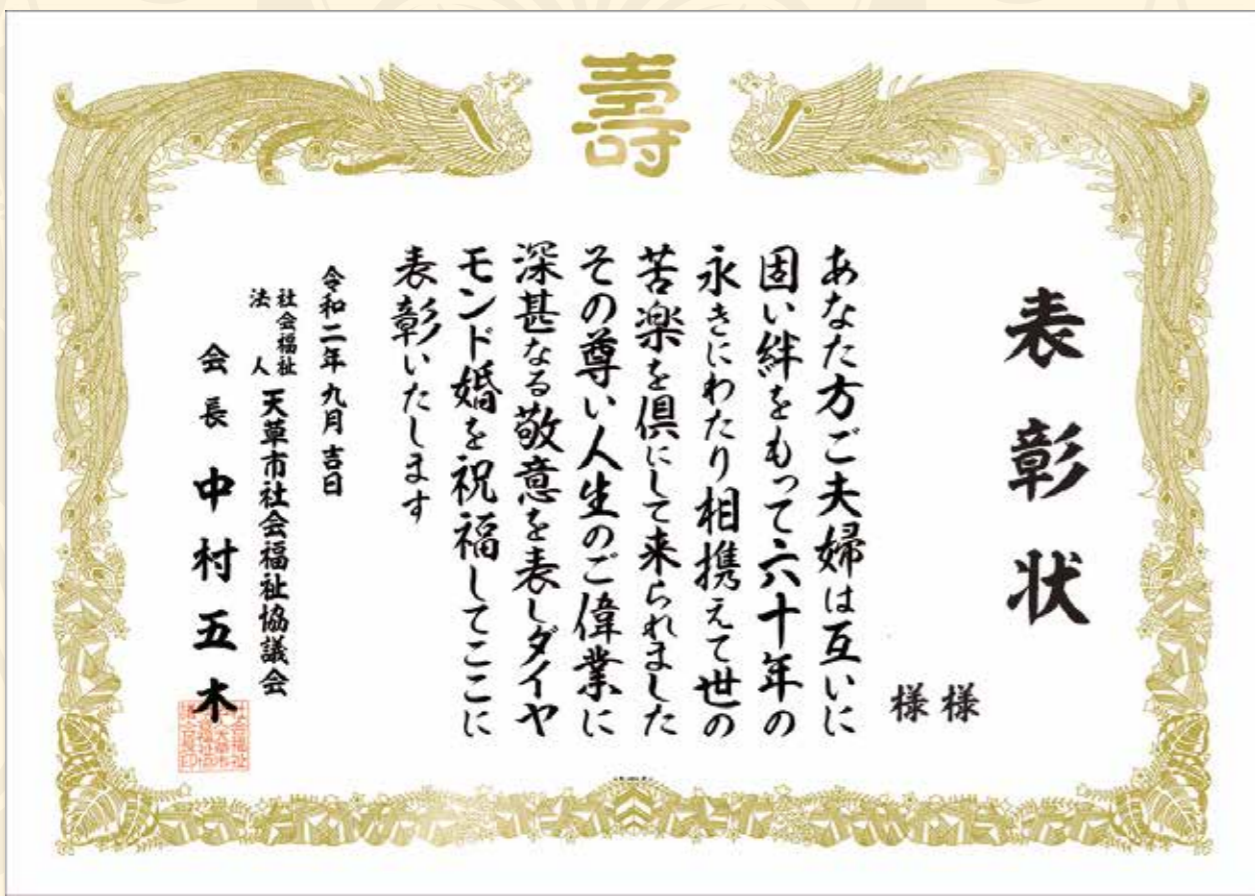 壽
表彰状
様
様
あなた方ご夫婦は互いに
固い絆をもって六十年の
永きにわたり相携えて世の
苦楽を倶にして来られました
その尊い人生のご偉業に
深甚なる敬意を表しダイヤ
モンド婚を祝福してここに
表彰いたします
令和二年九月吉日
社会福祉
法人
天草市社会福祉協議会
会長 中村五木